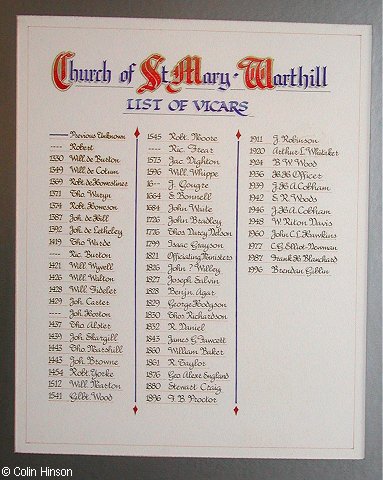 Church of St Mary • Warthill
LIST OF VICARS
Previous Unknown
---- Robert
1330 Will de Burton
1349 Will de Cotum
1369 Robt de Homestiner
1371 Tho Waryn
1374 Robt Homeson
1387 Joh de Hill
1392 Joh de Letheley
1419 Tho Warde
---- Ric Burton
1421 Will Wyvell
1426 Will Walton
1428 Will Fideler
1429 Joh Carter
---- Joh Hoston
1437 Tho Alster
1439 Joh Skargill
1443 Tho Marshall
1443 Joh Browne
1454 Robt Yorke
1512 Will Marton
1541 Gilbt Wood
1545 Robt Moore
---- Ric Frear
1573 Jac Dighton
1596 Will Whippe
16-- J. Gougre
1664 E Bonnell
1684 John Waite
1726 John Bradley
1776 Thos Darcy Nelson
1799 Isaac Grayson
1821 Officiating Ministers
1826 John ? Willey
1827 Joseph Salvin
1828 Benjn Agar
1829 George Hodgson
1830 Thos Richardson
1832 R. Daniel
1843 James G Fawcett
1860 William Baker
1861 R Taylor
1876 Geo Alexr England
1880 Stewart Craig
1896 F B Proctor
1911 J Robinson
1920 Arthur L Whitaker
1924 B W Wood
1936 H H Officer
1939 J H A Cobham
1942 E R Woods
1946 J H A Cobham
1948 W Riton Davis
1960 John C L Hawkins
1977 C G Elliot-Newman
1987 Frank H Blanchard
1996 Brendan Giblin
© Colin Hinson